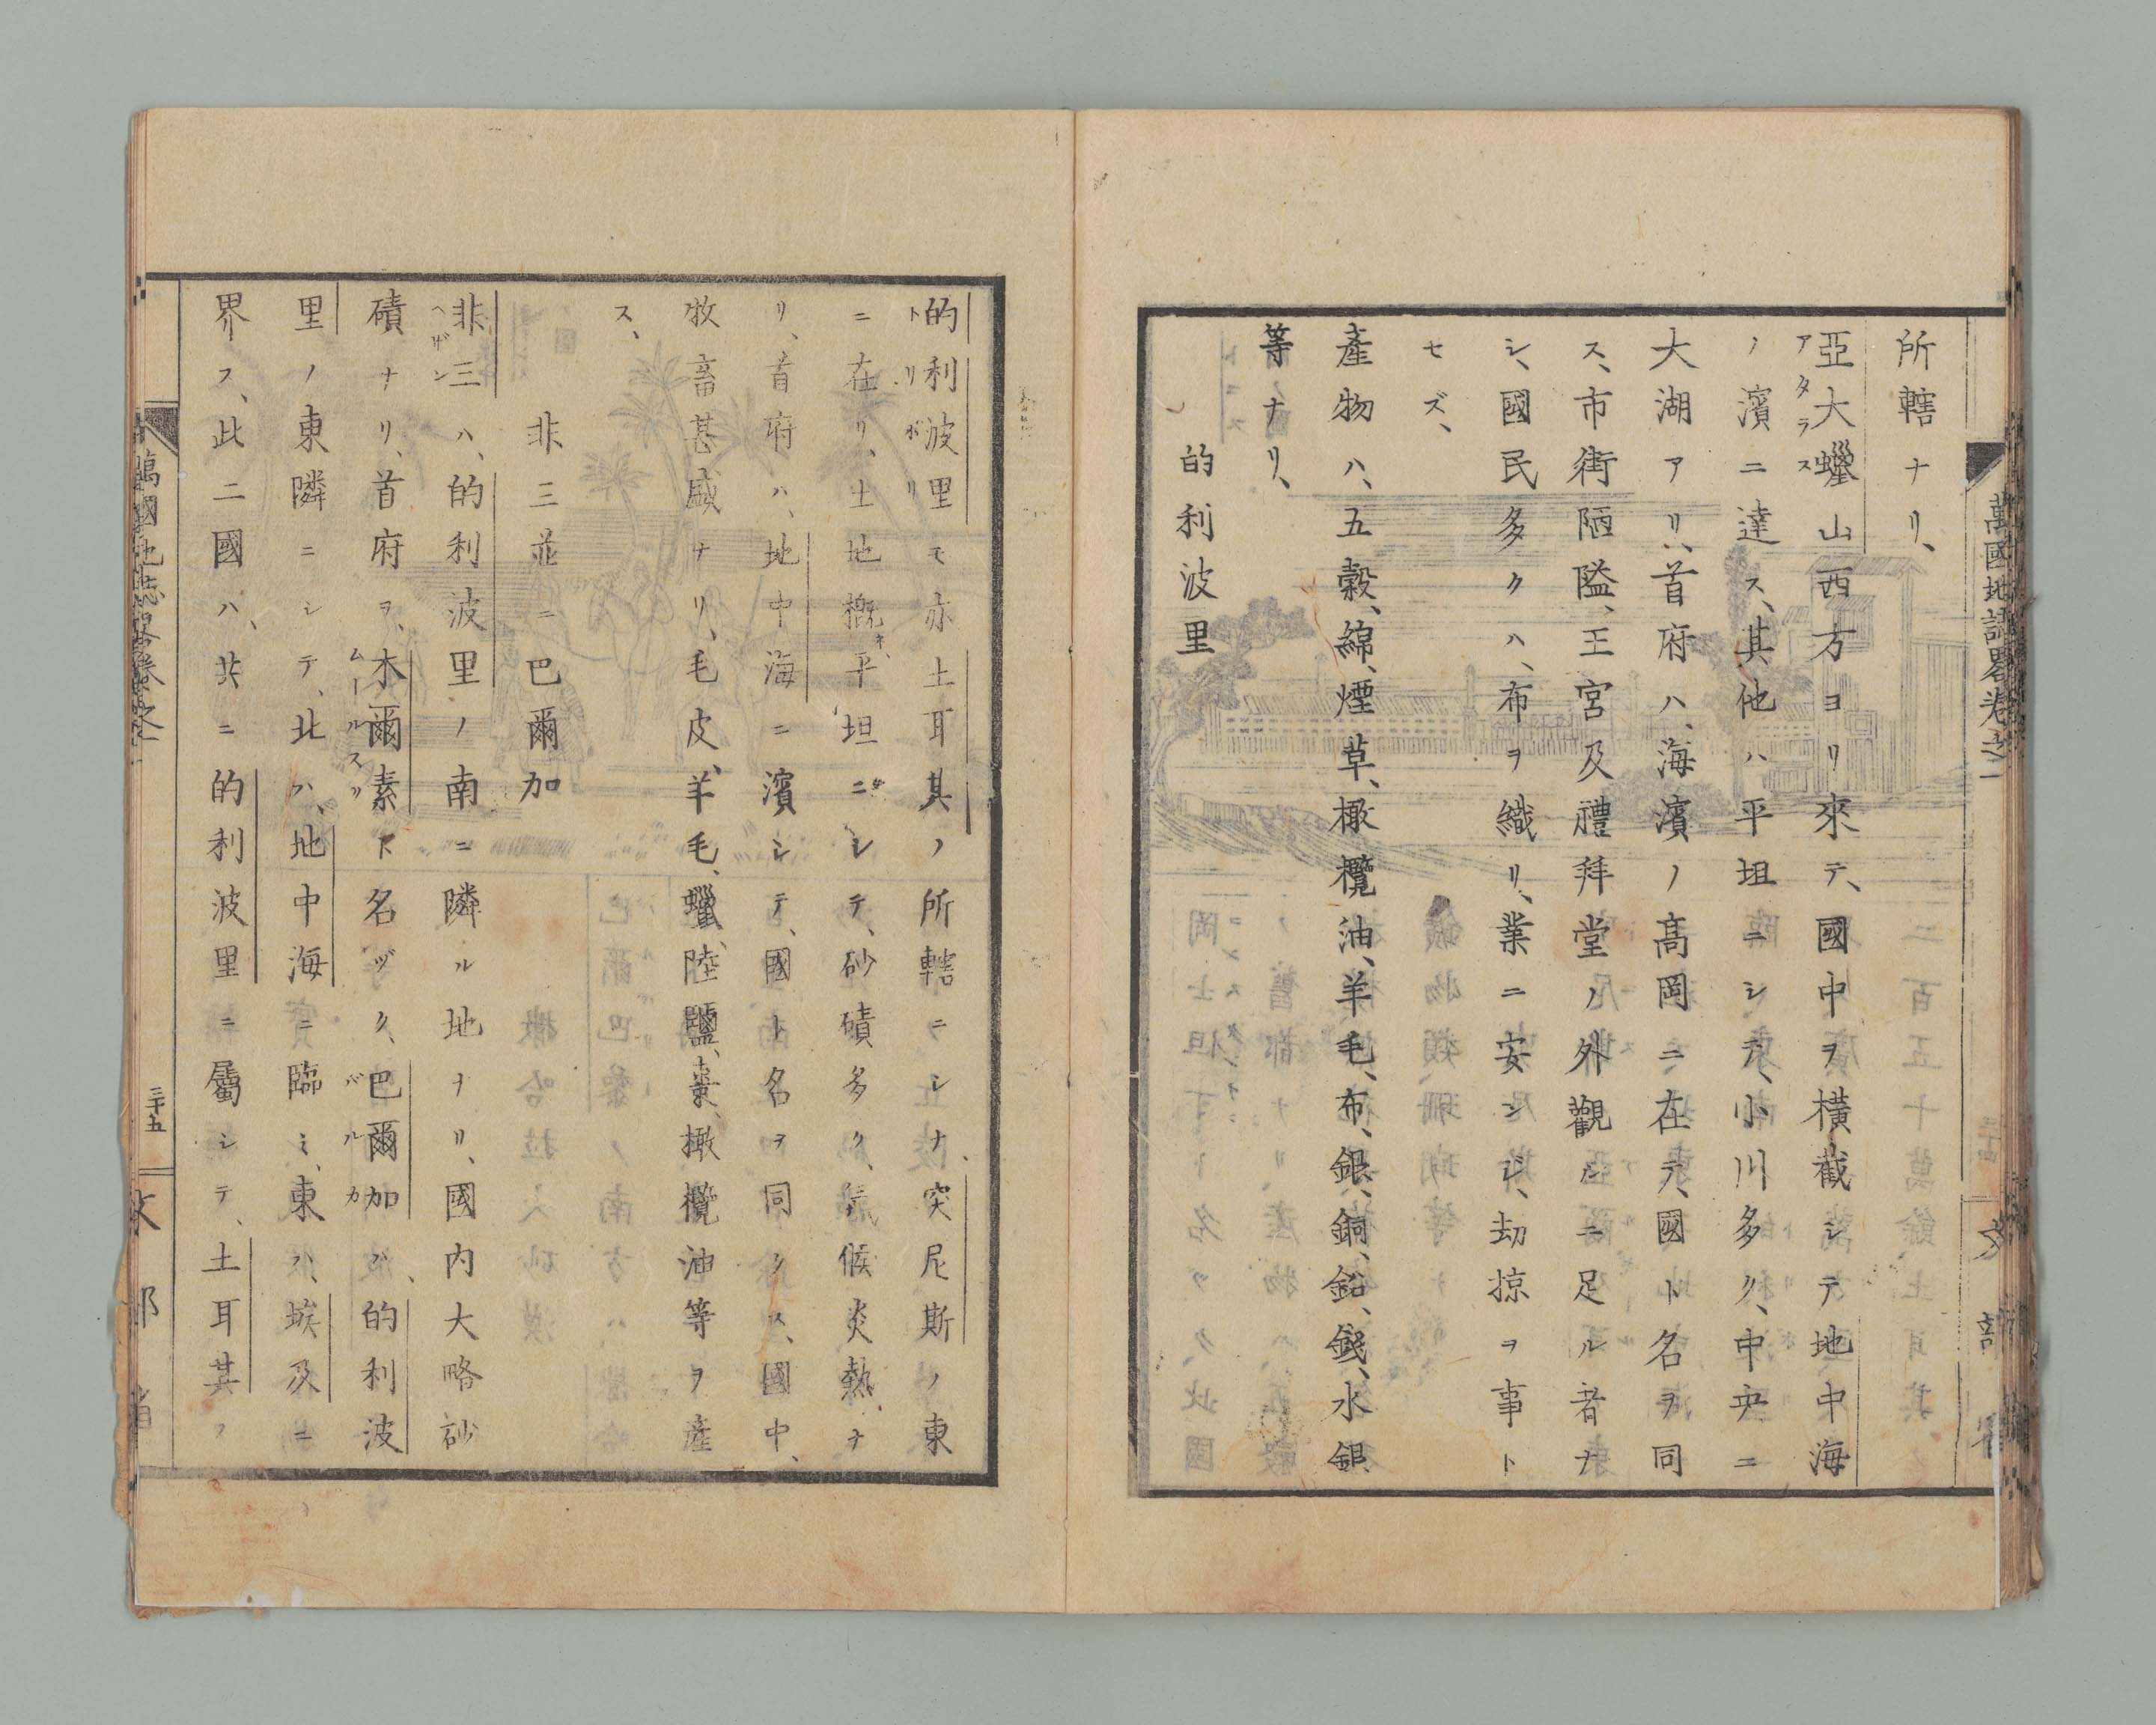 萬國地誌畧卷之一
文部省
所轄ナリ、
亞大蠟山西方ヨリ來テ、國中ヲ橫截シテ地中海
アタラス
ノ濱ニ達ス、其他ハ平坦ニシテ、小川多ク、中央ニ
大湖アリ、首府ハ、海濱ノ高岡ニ在テ、國ト名ヲ同
ス、市街陋隘、王宮及禮拜堂ノ外觀ルニ足ル者ナ
シ、國民多クハ、布ヲ織リ、業ニ安ンジ、劫掠ヲ事ト
セズ、
產物ハ、五穀、綿、煙草、橄欖油、羊毛、布、銀、銅、鉛、錢、水銀
等ナリ、
的利波里
的利波里モ亦土耳其ノ所轄ニシテ、突尼斯ノ東
トリポリ
ニ在リ、土地概ネ平坦ニシテ、砂磧多ク、氣候炎熱ナ
リ、首府ハ、地中海ニ濱シテ、國ト名ヲ同ジス、國中、
牧畜甚盛ナリ、毛皮、羊毛、蠟、陸鹽、棗、橄欖油等ヲ產
ス、
非三並ニ巴爾加
非三ハ、的利波里ノ南ニ隣ル地ナリ、國内大略砂
ヘザン
磧ナリ、首府ヲ、木爾素ト名ヅク、巴爾加ハ、的利波
ムールスク
バルカ
里ノ東隣ニシテ、北ハ、地中海ニ臨ミ、東ハ、埃及ニ
界ス、此二國ハ、共ニ的利波里ニ屬シテ、土耳其ノ
萬國地誌畧卷之一
三十五
文部省